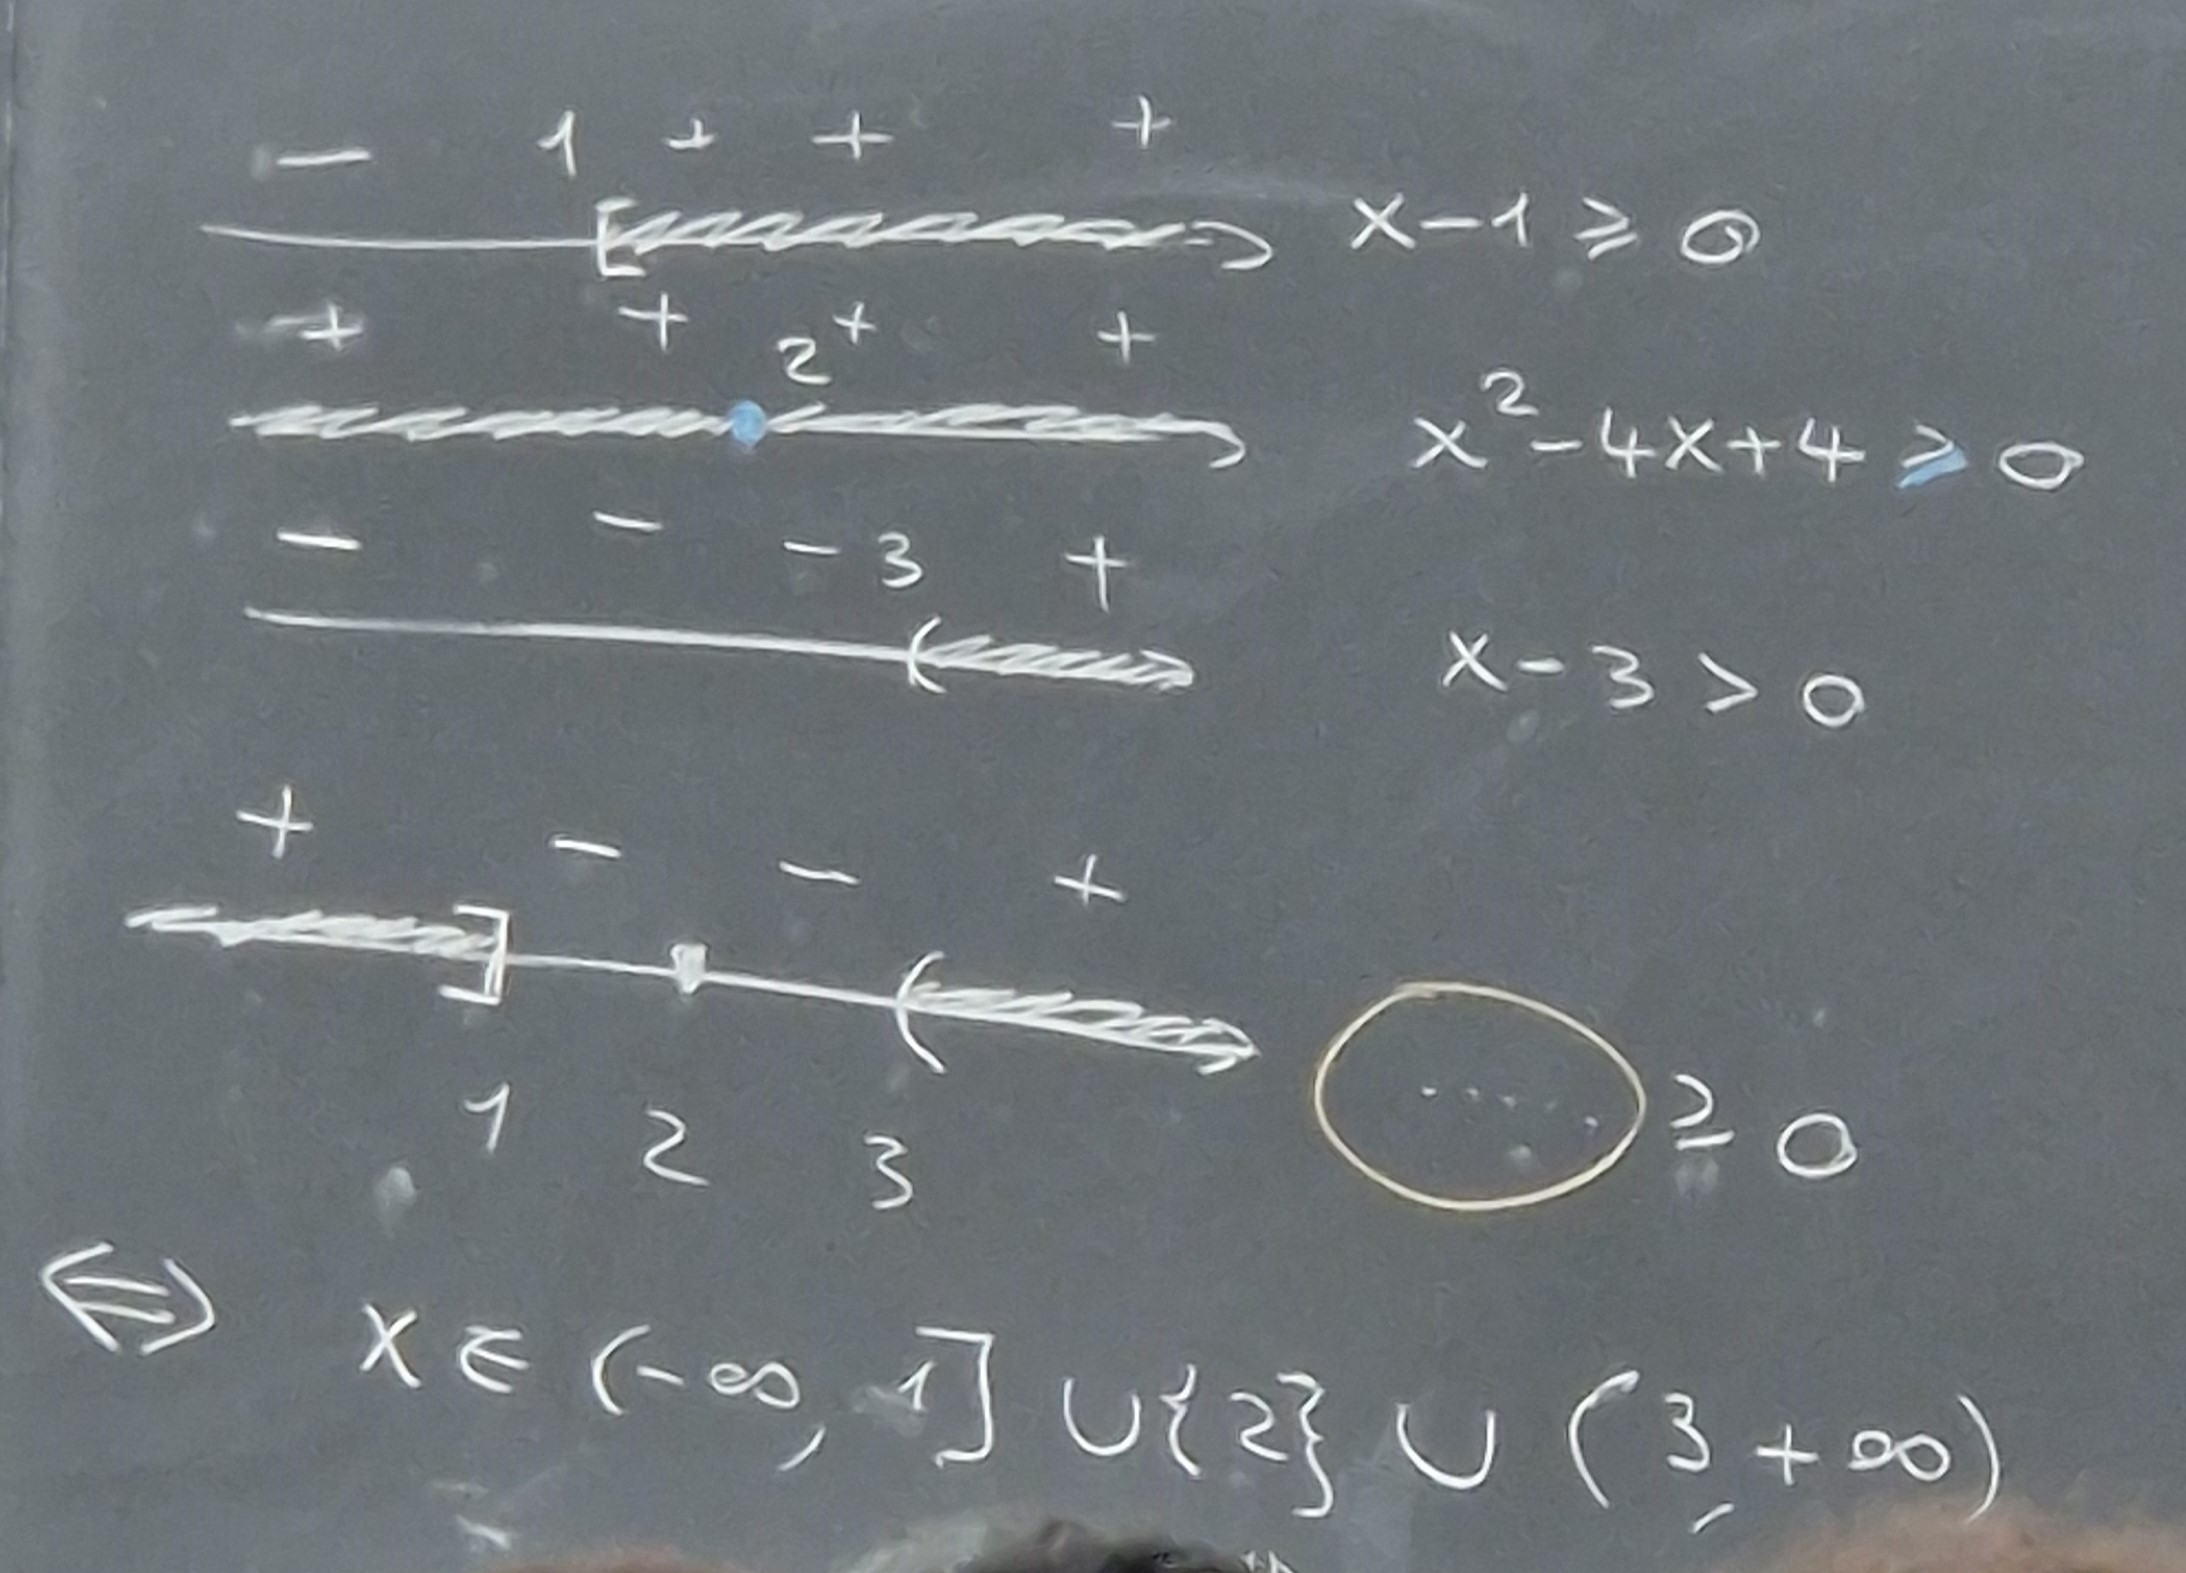 − 1 + + +
x-1 ≥ 0
+ + 2 + +
x²-4x+4 ≥ 0
− − − 3 +
x-3 > 0
+ − − +
1 2 3
..... ≥ 0
⟺ x ∈ (-∞, 1] ∪ {2} ∪ (3, +∞)